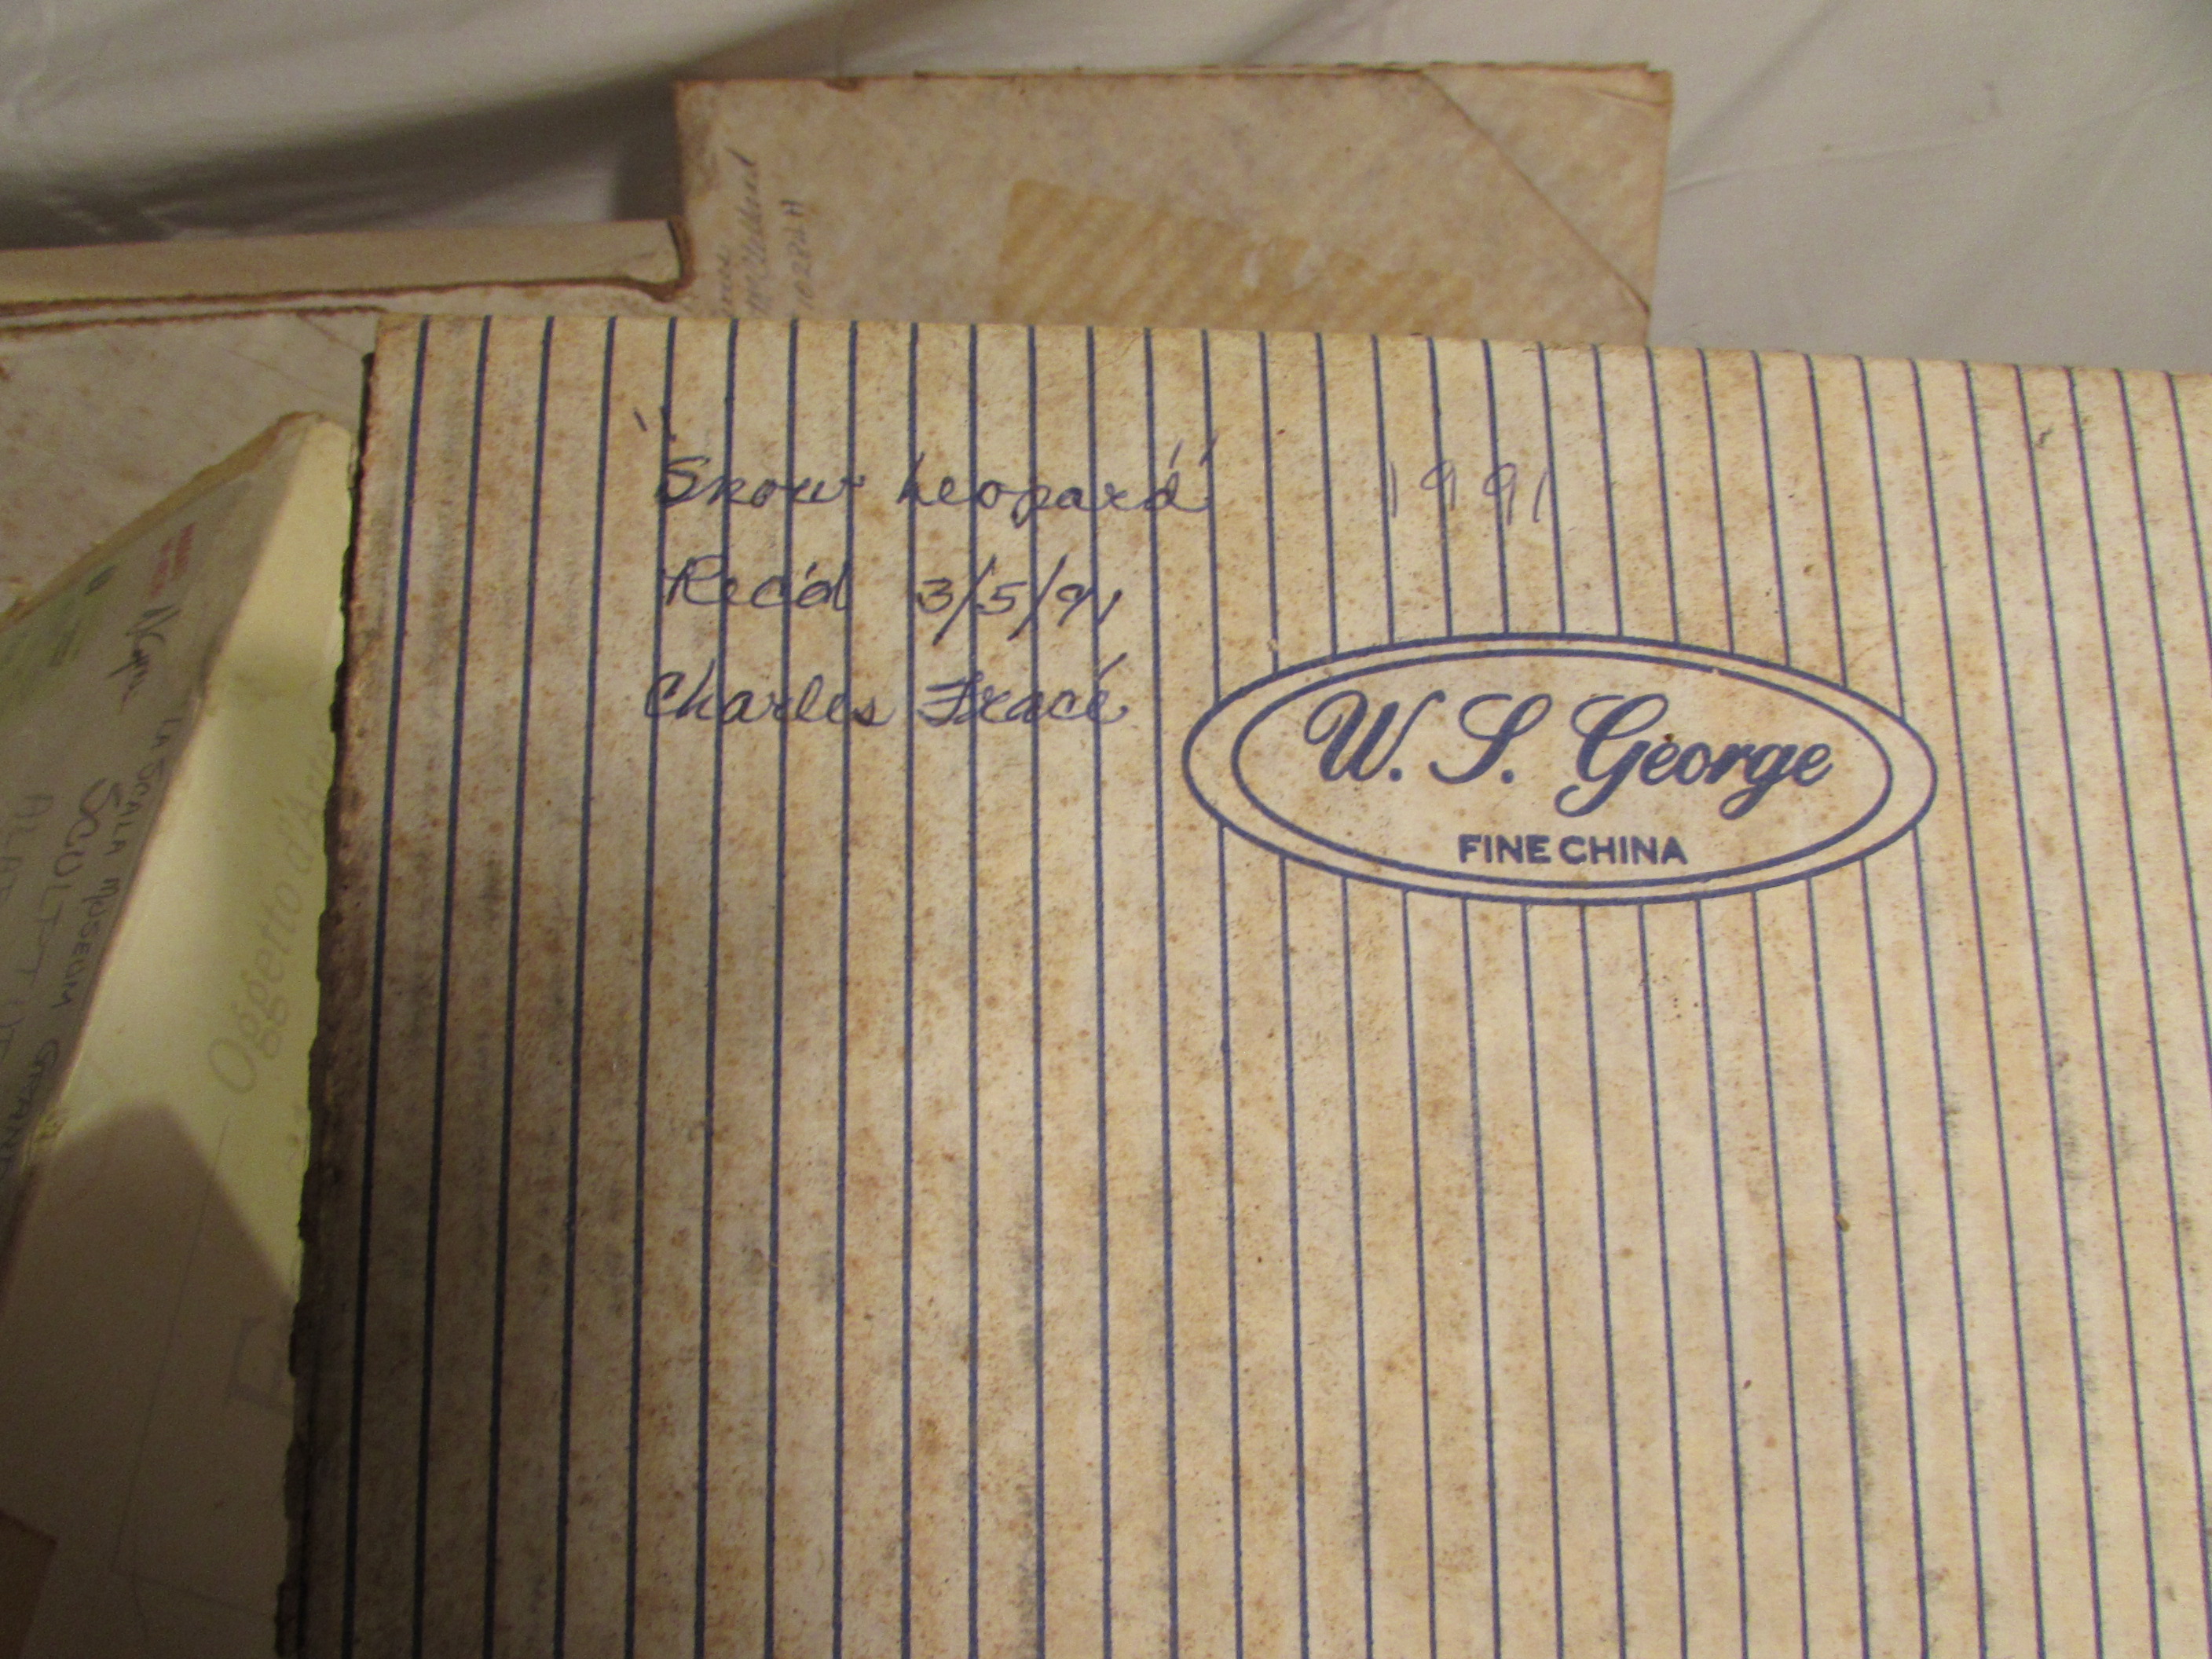 "Snow Leopard" 1991
Rec'd 3/5/91
Charles Fracé
W. S. George
FINE CHINA
LA SCALA MUSEUM
SCULPT
Oggetto d'Ar